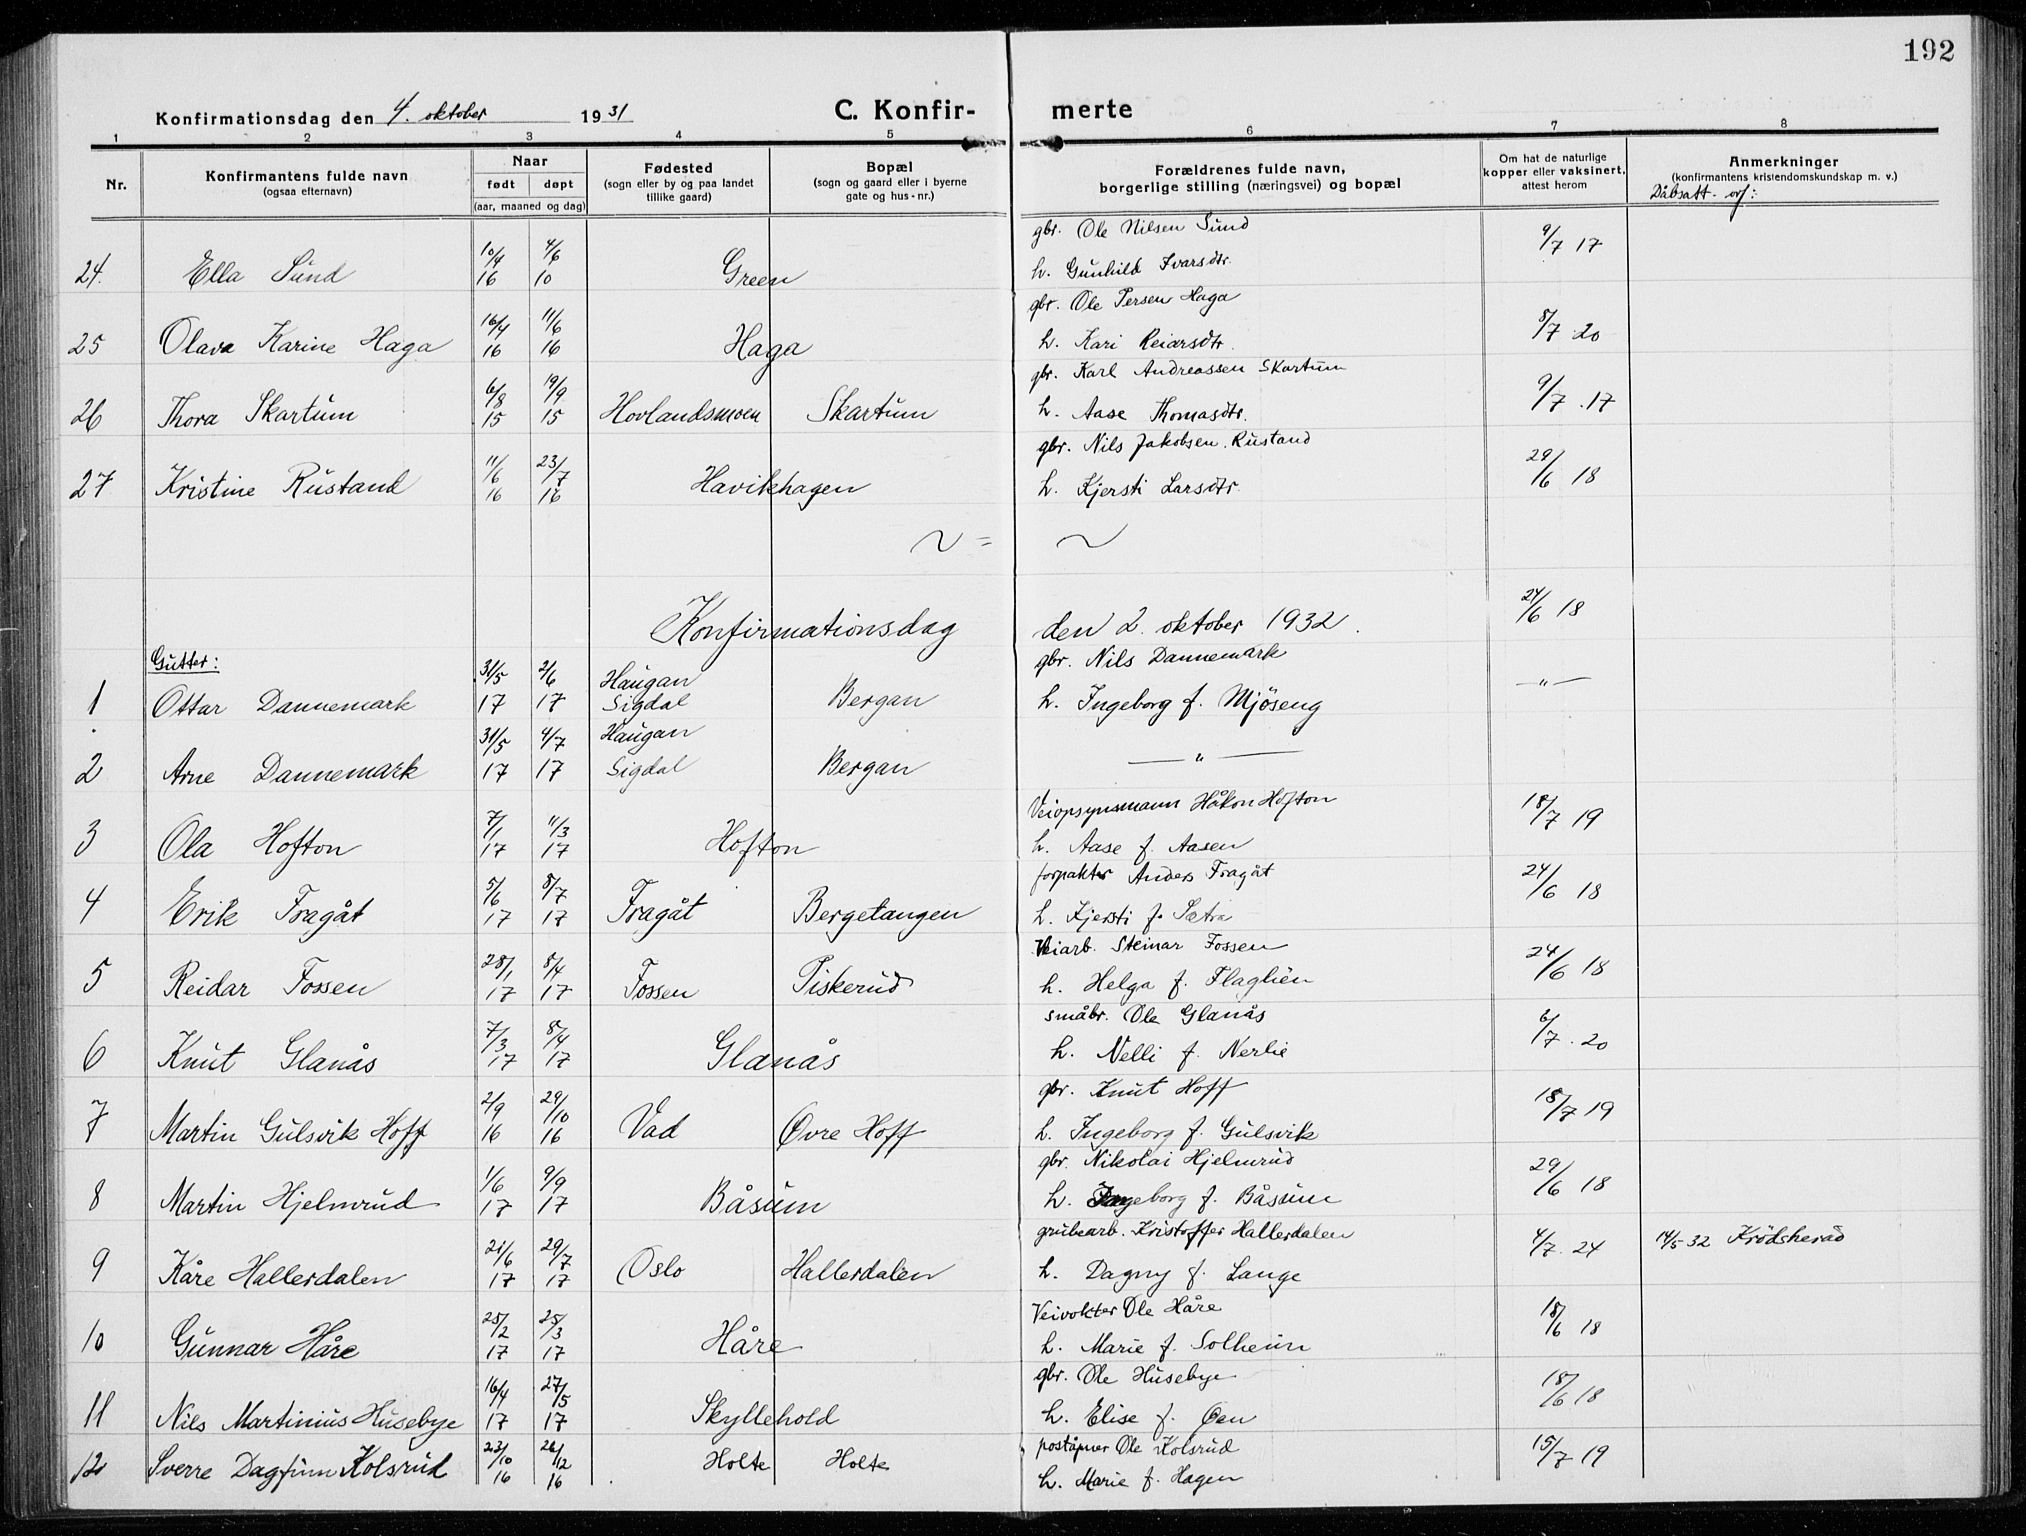 192
Konfirmationsdag den 4. oktober 1931 C. Konfir- merte
1 2 3 4 5 6 7 8
Nr. Konfirmantens fulde navn (ogsaa efternavn) Naar født døpt (aar, maaned og dag) Fødested (sogn eller by og paa landet tillike gaard) Bopæl (sogn og gaard eller i byerne gate og hus-nr.) Forældrenes fulde navn, borgerlige stilling (næringsvei) og bopæl Om hat de naturlige kopper eller vaksinert, attest herom Anmerkninger (konfirmantens kristendomskundskap m. v.)
Dåbsatt.
gbr. Ole Nilsen Sund
24. Ella Sund 10/4 16 4/6 10 Green h. Gunhild Ivarsdtr. 9/7 17
gbr. Ole Persen Haga
25 Olava Karine Haga 16/4 16 11/6 16 Haga h. Kari Reiarsdtr. 8/7 20
gbr. Karl Andreassen Skartum
26 Thora Skartum 6/8 15 19/9 15 Hovlandsmoen Skartum h. Aase Thomasdtr. 9/7 17
gbr. Nils Jakobsen Rustand
27 Kristine Rustand 11/6 16 23/7 16 Havikhagen h. Kjersti Larsdtr. 29/6 18
~ = ~
Konfirmationsdag den 2. oktober 1932. 24/6 18
Gutter:
gbr. Nils Dannemark
1 Ottar Dannemark 31/5 17 2/6 17 Haugan Sigdal Bergan h. Ingeborg f. Mjöseng —"—
2 Arne Dannemark 31/5 17 4/7 17 Haugan Sigdal Bergan —"—
Veiopsynsmann Håkon Hofton
3 Ola Hofton 7/1 17 11/3 17 Hofton h. Aase f. Aasen 18/7 19
forpakter Anders Fragåt
4 Erik Fragåt 5/6 17 8/7 17 Fragåt Bergetangen h. Kjersti f. Sætra 24/6 18
Veiarb. Steinar Fossen
5 Reidar Fossen 28/1 17 8/4 17 Fossen Piskerud h. Helga f. Flaglien 24/6 18
småbr. Ole Glanås
6 Knut Glanås 7/3 17 8/4 17 Glanås h. Nelli f. Nerlie 6/7 20
gbr. Knut Hoff
7 Martin Gulsvik Hoff 2/9 16 29/10 16 Vad Øvre Hoff h. Ingeborg f. Gulsvik 18/7 19
gbr. Nikolai Hjelmrud
8 Martin Hjelmrud 1/6 17 9/9 17 Båsum h. Ingeborg f. Båsum 29/6 18
grubearb. Kristoffer Hallerdalen
9 Kåre Hallerdalen 21/6 17 29/7 17 Oslo Hallerdalen h. Dagny f. Lange 4/7 24 14/5 32 Krödsherad
Veivokter Ole Håre
10 Gunnar Håre 25/2 17 25/3 17 Håre h. Marie f. Solheim 18/6 18
gbr. Ole Husebye
11 Nils Martinius Husebye 16/4 17 27/5 17 Skyllehold h. Elise f. Øen 18/6 18
poståpner Ole Kolsrud
12 Sverre Dagfinn Kolsrud 23/10 16 26/12 16 Holte Holte h. Marie f. Hagen 15/7 19